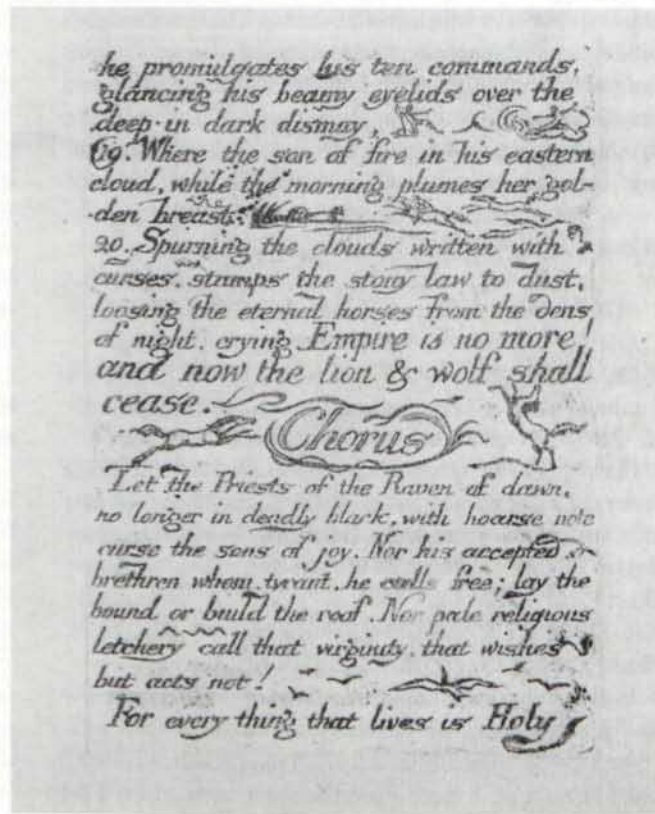 he promulgates his ten commands,
glancing his beamy eyelids over the
deep in dark dismay,
19. Where the son of fire in his eastern
cloud, while the morning plumes her gol-
den breast,
20. Spurning the clouds written with
curses, stamps the stony law to dust,
loosing the eternal horses from the dens
of night, crying Empire is no more!
and now the lion & wolf shall
cease.
Chorus
Let the Priests of the Raven of dawn,
no longer in deadly black, with hoarse note
curse the sons of joy. Nor his accepted
brethren whom, tyrant, he calls free; lay the
bound or build the roof. Nor pale religious
letchery call that virginity, that wishes
but acts not!
For every thing that lives is Holy